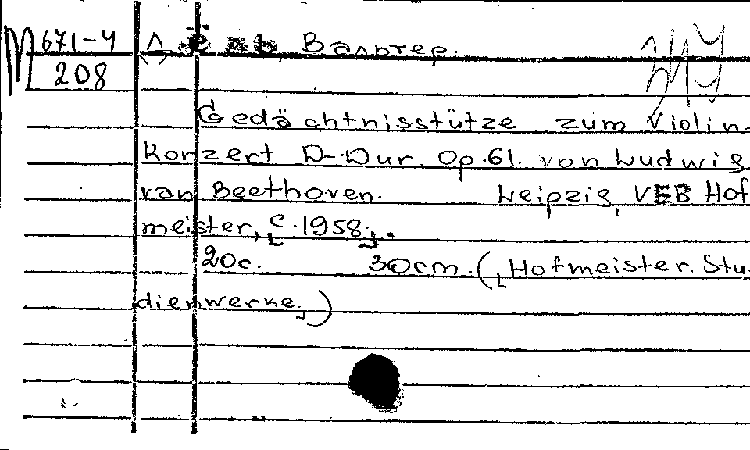 М 671-4
208
Лёбь Вальтер.
Gedächtnisstütze zum Violin
Konzert D-Dur. Op.61. von Ludwig
van Beethoven. Leipzig, VEB Hof
meister, [c.1958].
20c. 30cm. ([Hofmeister. Stu-
dienwerke.])